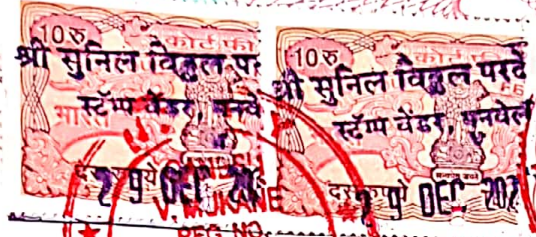 10 रु
कोर्ट फी
श्री सुनिल विठ्ठल
स्टॅम्प वेंडर, पनवे
29 DEC 202
10 रु
श्री सुनिल विठ्ठल परदे
स्टॅम्प वेंडर, पनवेल
सत्यमेव जयते
29 DEC 202
V. MUKANE
REG. NO.